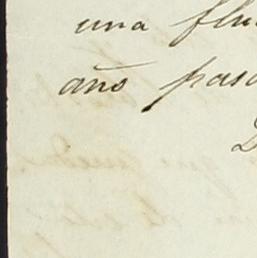 una flu
año pasa
D